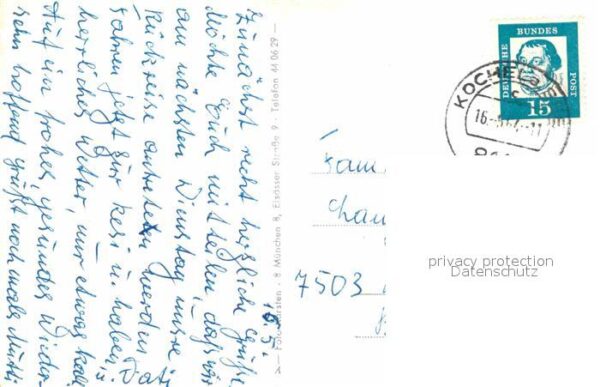 16.5.
Zunächst recht herzliche Grüße
Möchte Euch mitteilen, daß wir
am nächsten Dienstag unsere
Rückreise antreten werden.
herrliches Wetter, nur etwas kalt
Auf ein frohes, gesundes Wieder-
sehn hoffend grüßt nochmals
8 München 8, Elsässer Straße 9 · Telefon 44 06 29
DEUTSCHE BUNDES POST
15
KOCHEL a
16.-5.64.-11
Fam
7503
privacy protection
Datenschutz